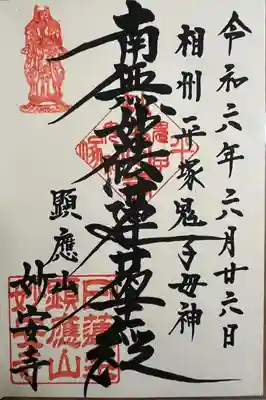 令和六年六月廿六日
相州平塚鬼子母神
南無妙法蓮華經
顕應山
妙安寺
日蓮宗
顕應山
妙安寺